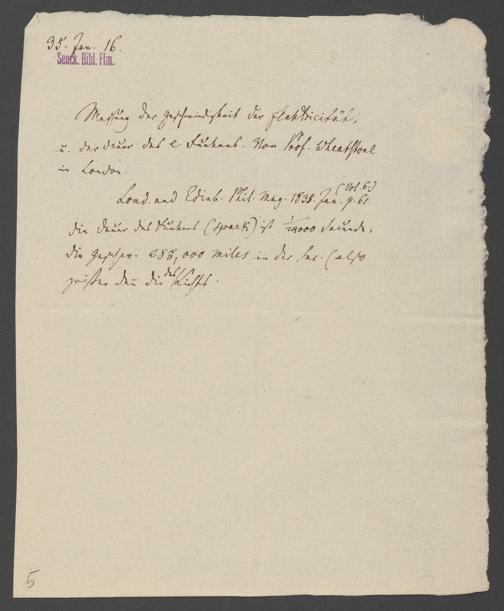 35. Jan. 16.
Senck. Bibl. Ffm.
Messung der Geschwindigkeit der Elektricität,
u. der Dauer des e Funkens. Von Prof. Wheatstone
in London.
Lond. and Edinb. Phil. Mag. 1835. Jan. (Vol. 6.) p. 61.
Die Dauer des Funkens (spark) ist 1/24000 Secunde,
die Geschw. 288,000 miles in der Sec. (also
größer denn die des Lichts.
5